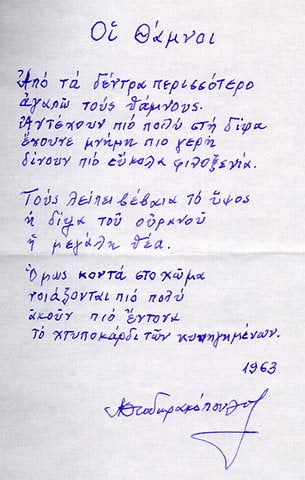 Οἱ Θάμνοι
Ἀπό τά δέντρα περισσότερο
ἀγαπῶ τούς θάμνους.
Ἀντέχουν πιό πολύ στή δίψα
ἔχουνε μνήμη πιο γερή
δίνουν πιό εὔκολα φιλοξενία.
Τούς λείπει βέβαια τό ὕψος
ἡ δίψα τοῦ οὐρανοῦ
ἡ μεγάλη θέα.
Ὅμως κοντά στο χῶμα
νοιάζονται πιό πολύ
ἀκοῦν πιό ἔντονα
τό χτυποκάρδι τῶν κυνηγημένων.
1963